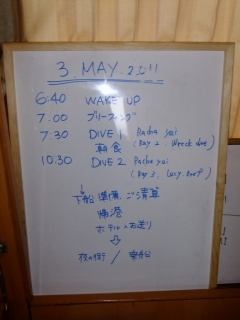 3. MAY. 2011
6:40 WAKE UP
7.00 ブリーフィング
7.30 DIVE 1 Racha yai
朝食 (Bay 2, Wreck dive)
10:30 DIVE 2 Racha yai
(Bay 3, Lucy Reef)
↓
下船準備、ご清算
帰港
ホテルへお送り
⇩
夜の街 / 乗船